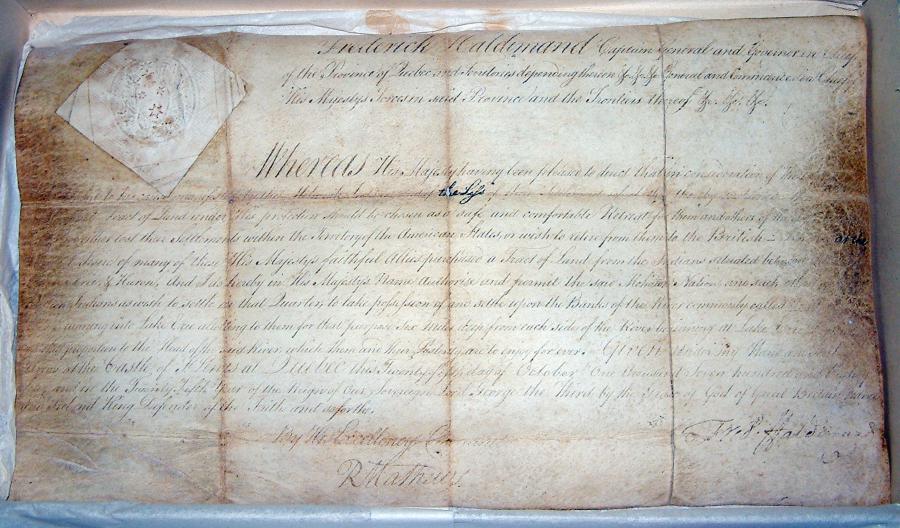 Frederick Haldimand Captain General and Governor in Chief
of the Province of Quebec and Territories depending thereon &c. &c. &c. General and Commander in Chief
His Majestys Forces in said Province and the Frontiers thereof &c. &c. &c.
Whereas His Majesty having been pleased to direct that in consideration of the
the Loss of their Settlement
Tract of Land under His protection should be chosen as a safe and comfortable Retreat for them and others of the
lost their Settlements within the Territory of the American States, or wish to retire from them to the British
desire of many of these His Majestys faithfull Allies purchased a Tract of Land from the Indians situated between
& Huron, And I do hereby in His Majestys Name Authorise and permit the said Mohawk Nation, and such
Indians as wish to settle in that Quarter to take possession of and settle upon the Banks of the River commonly called
running into Lake Erie allotting to them for that purpose Six Miles deep from each side of the River beginning at Lake Erie
proportion to the Head of the said River, which them and their Posterity are to enjoy for ever. Given under my Hand and Seal
at the Castle of St Lewis at Quebec this Twenty fifth day of October One thousand Seven hundred and
and in the Twenty Fifth Year of the Reign of Our Sovereign Lord George the Third by the Grace of God of Great Britain France
and Ireland King Defender of the Faith and so forth.
Fred: Haldimand
By His Excellencys Command
R Mathews